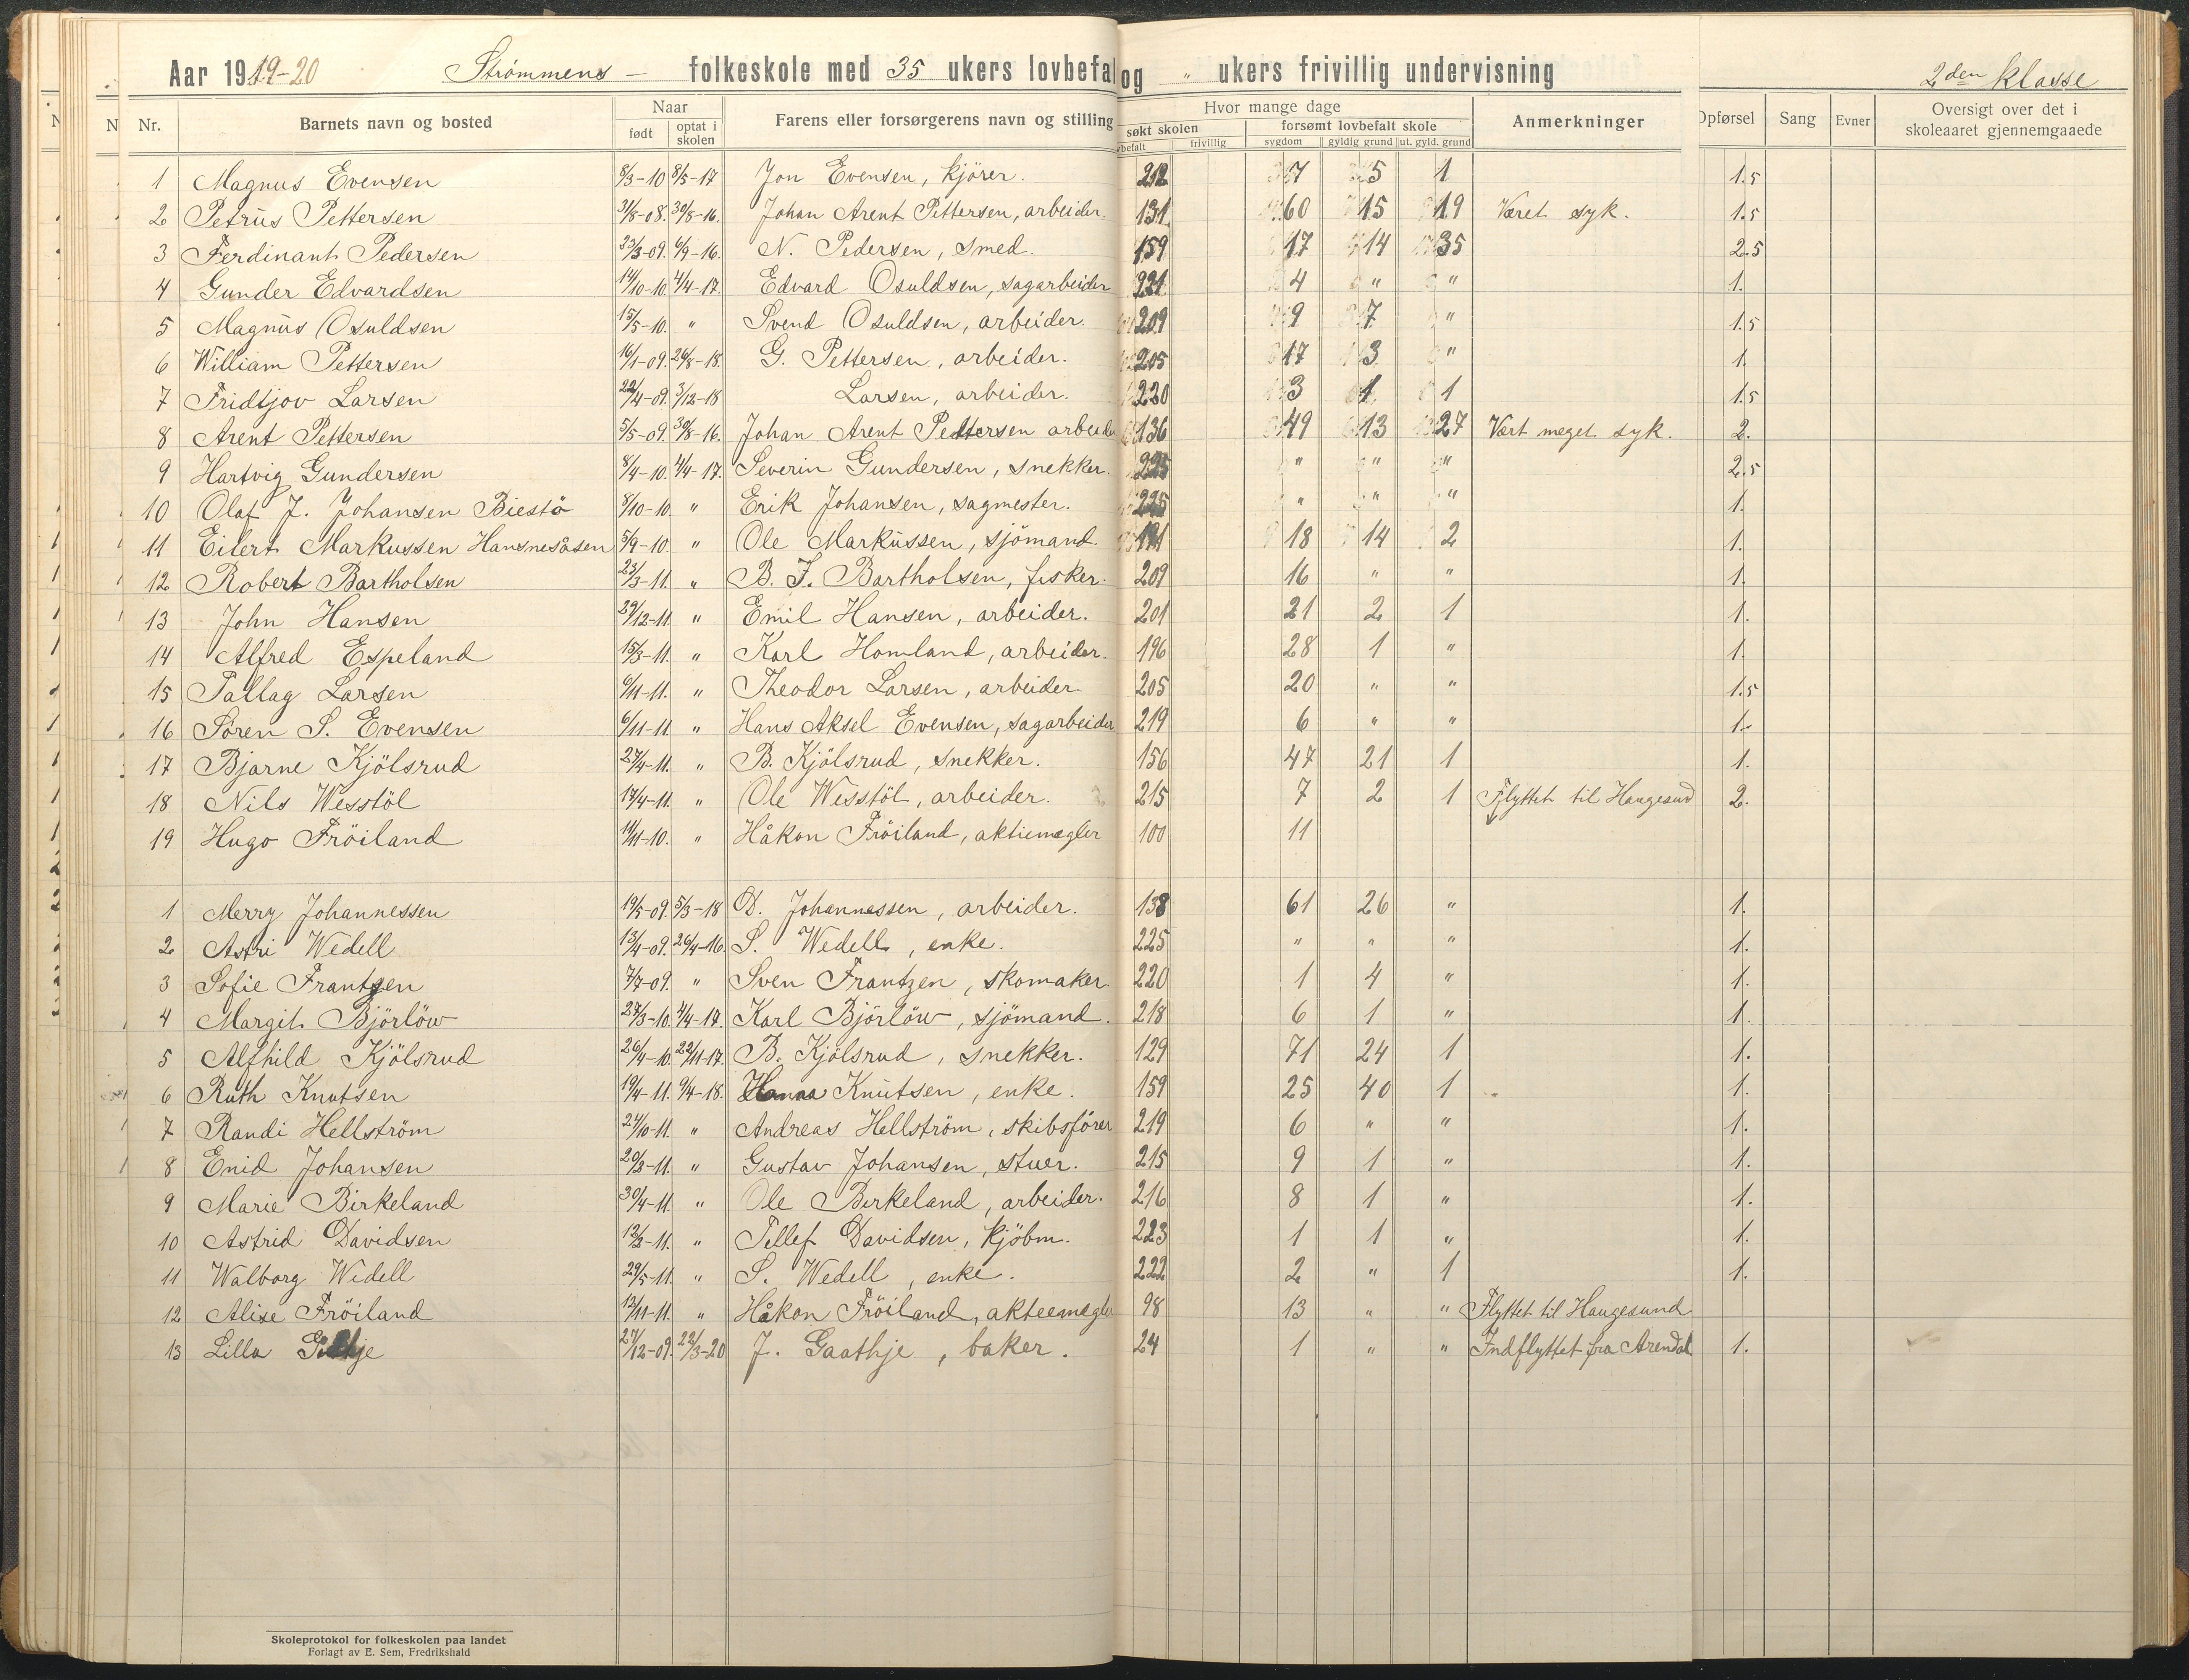 Aar 1919-20 Strömmens - folkeskole med 35 ukers lovbefal og " ukers frivillig undervisning 2den klasse
Nr. Barnets navn og bosted Naar født optat i skolen Farens eller forsørgerens navn og stilling Hvor mange dage søkt skolen frivillig forsømt lovbefalt skole sygdom gyldig grund ut. gyld. grund Anmerkninger Opførsel Sang Evner Oversigt over det i skoleaaret gjennemgaaede
1 Magnus Evensen 8/3-10 8/5-17 Jon Evensen, kjörer. 212 7 5 1 1.5
2 Petrus Pettersen 31/8-08. 30/8-16. Johan Arent Pettersen, arbeider. 131 60 15 19 Været syk. 1.5
3 Ferdinant Pedersen 23/3-09. 6/9-16. N. Pedersen, smed. 159 17 14 35 2.5
4 Gunder Edvardsen 14/10-10. 4/4-17. Edvard Osuldsen, sagarbeider 221 4 " " 1.
5 Magnus Osuldsen 15/5-10. " Svend Osuldsen, arbeider. 209 9 7 " 1.5
6 William Pettersen 16/1-09. 26/8-18. G. Pettersen, arbeider. 205 17 3 " 1.
7 Fridtjov Larsen 22/4-09. 3/12-18 Larsen, arbeider. 220 3 1 1 1.5
8 Arent Pettersen 5/5-09. 30/8-16. Johan Arent Pettersen arbeider 136 49 13 27 Vært meget syk. 2.
9 Hartvig Gundersen 8/4-10. 4/4-17. Severin Gundersen, snekker. 225 " " " 2.5
10 Olaf J. Johansen Biestö 8/10-10 " Erik Johansen, sagmester. 225 " " " 1.
11 Eilert Markussen Hansnesåsen 5/9-10. " Ole Markussen, sjömand. 191 18 14 2 1.
12 Robert Bartholsen 23/3-11. " B. J. Bartholsen, fisker. 209 16 " " 1.
13 John Hansen 29/12-11. " Emil Hansen, arbeider. 201 21 2 1 1.
14 Alfred Espeland 15/3-11. " Karl Homland, arbeider. 196 28 1 " 1.
15 Tallag Larsen 6/11-11. " Theodor Larsen, arbeider 205 20 " " 1.5
16 Sören S. Evensen 6/11-11. " Hans Aksel Evensen, sagarbeider 219 6 " " 1.
17 Bjarne Kjölsrud 27/4-11. " B. Kjölsrud, snekker. 156 47 21 1 1.
18 Nils Wesstöl 17/4-11. " Ole Wesstöl, arbeider. 215 7 2 1 Flyttet til Haugesund 2.
19 Hugo Fröiland 14/11-10. " Håkon Fröiland, aktiemægler 100 11
1 Merry Johannessen 19/5-09. 5/3-18 D. Johannessen, arbeider. 138 61 26 " 1.
2 Astri Wedell 13/4-09. 26/4-16. S. Wedell, enke. 225 " " " 1.
3 Sofie Frantzen 7/7-09. " Sven Frantzen, skomaker. 220 1 4 " 1.
4 Margit Björlöw 27/3-10. 4/4-17. Karl Björlöw, sjömand. 218 6 1 " 1.
5 Alfhild Kjölsrud 26/4-10. 22/11-17. B. Kjölsrud, snekker. 129 71 24 1 1.
6 Ruth Knutsen 19/4-11. 9/4-18. Hanna Knutsen, enke. 159 25 40 1 1.
7 Randi Hellström 24/10-11. " Andreas Hellström, skibsförer 219 6 " " 1.
8 Enid Johansen 20/3-11. " Gustav Johansen, stuer. 215 9 1 " 1.
9 Marie Birkeland 30/4-11. " Ole Birkeland, arbeider. 216 8 1 " 1.
10 Astrid Davidsen 12/3-11. " Tellef Davidsen, kjöbm. 223 1 1 " 1.
11 Walborg Widell 29/5-11. " S. Wedell, enke. 222 2 " 1 1.
12 Alise Fröiland 13/11-11. " Håkon Fröiland, akteemægler 98 13 " " Flyttet til Haugesund
13 Lilla 27/12-09. 22/3-20 J. Gaathje, baker. 24 1 " " Indflyttet fra Arendal 1.
Skoleprotokol for folkeskolen paa landet
Forlagt av E. Sem, Fredrikshald